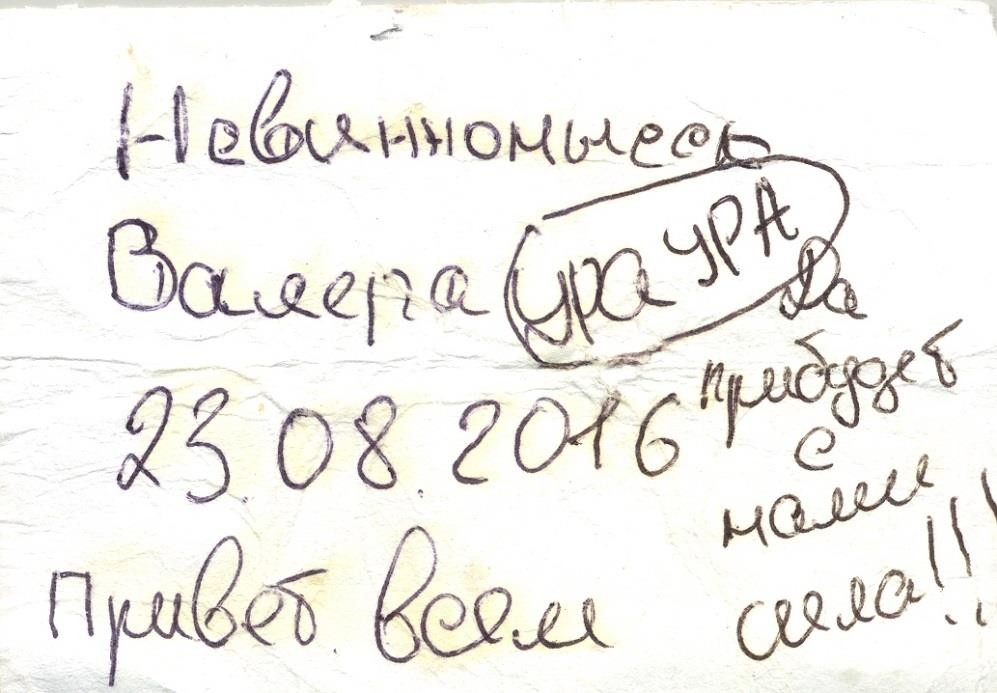 Невинномысск
Валера ура УРА
23.08.2016
Привет всем
Да
прибудет
с
нами
сила!!!